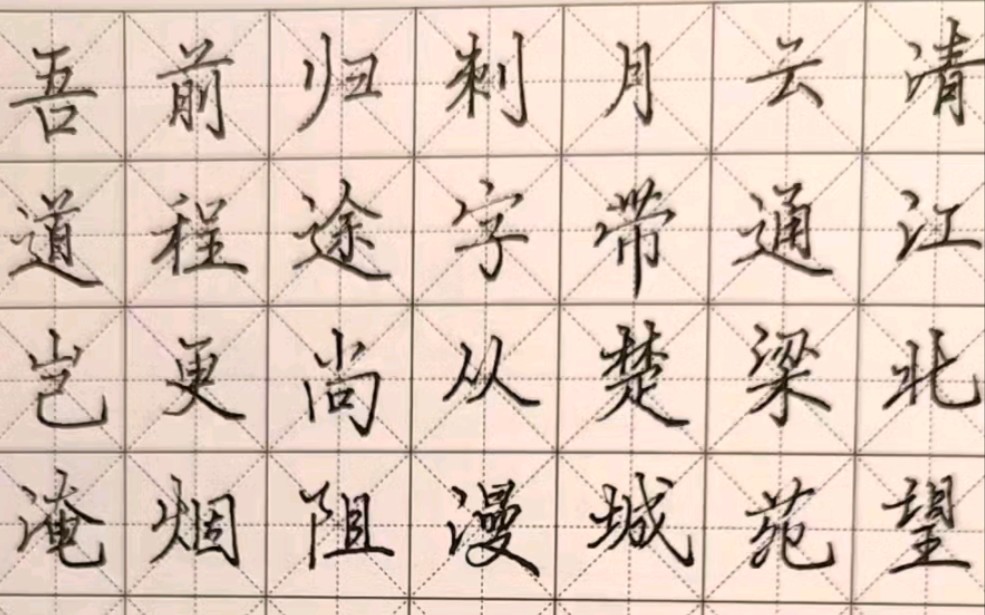 清江北望
云通梁苑
月带楚城
刺字从漫
归途尚阻
前程更烟
吾道岂淹